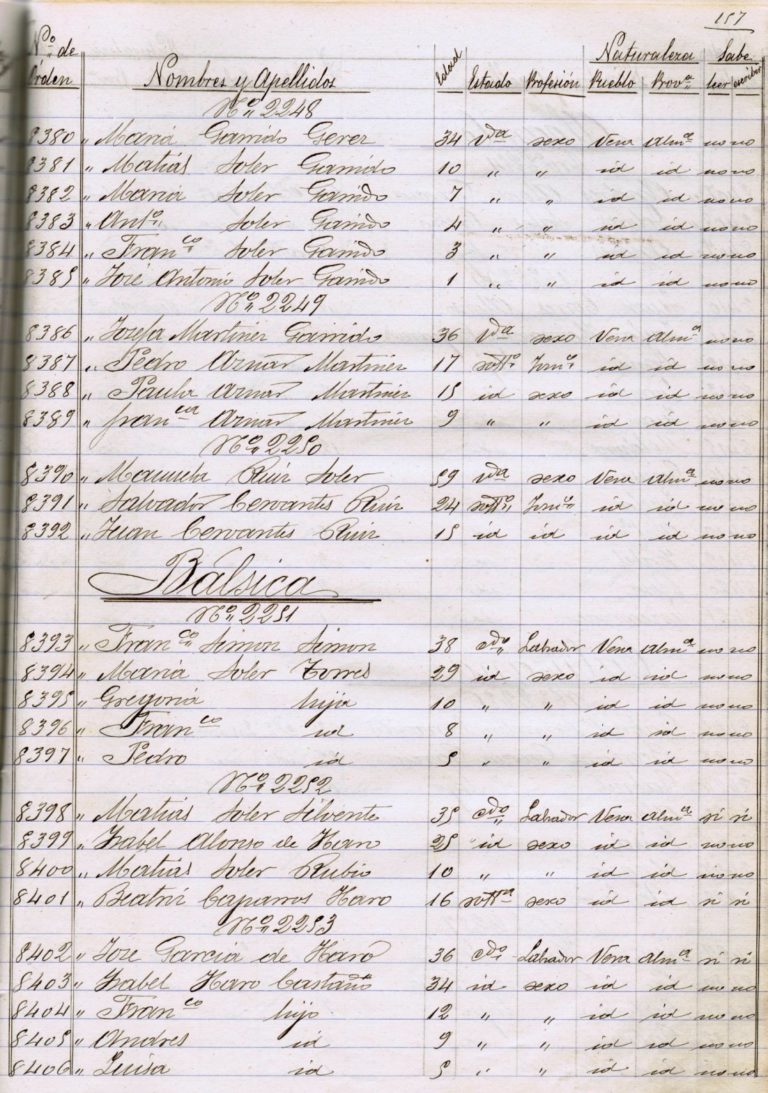 157
Nº de Orden Nombres y Apellidos Edad Estado Profesión Naturaleza Pueblo Provª Sabe leer escribir
Nº 2248
8380 " Maria Garrido Gerez 34 vda sexo Vera Almª no no
8381 " Matias Soler Garrido 10 " " id id no no
8382 " Maria Soler Garrido 7 " " id id no no
8383 " Antº Soler Garrido 4 " " id id no no
8384 " Franco Soler Garrido 3 " " id id no no
8385 " José Antonio Soler Garrido 1 " " id id no no
Nº 2249
8386 " Josefa Martinez Garrido 36 vda sexo Vera Almª no no
8387 " Pedro Aznar Martinez 17 soltº Jornº id id no no
8388 " Paula Aznar Martinez 15 id sexo id id no no
8389 " Franca Aznar Martinez 9 " " id id no no
Nº 2250
8390 " Manuela Ruiz Soler 59 vda sexo Vera Almª no no
8391 " Salvador Cervantes Ruiz 24 soltº Jornº id id no no
8392 " Juan Cervantes Ruiz 15 id id id id no no
Bálsica
Nº 2251
8393 " Franco Simon Simon 38 cdo Labrador Vera Almª no no
8394 " Maria Soler Torres 29 id sexo id id no no
8395 " Gregoria hija 10 " " id id no no
8396 " Franco id 8 " " id id no no
8397 " Pedro id 5 " " id id no no
Nº 2252
8398 " Matias Soler Silvente 35 cdo Labrador Vera Almª si si
8399 " Isabel Alonso de Haro 25 id sexo id id no no
8400 " Matias Soler Rubio 10 " " id id no no
8401 " Beatriz Caparros Haro 16 soltª sexo id id si si
Nº 2253
8402 " Jose Garcia de Haro 36 cdo Labrador Vera Almª si si
8403 " Isabel Haro Castaño 34 id sexo id id no no
8404 " Franco hijo 12 " " id id no no
8405 " Andres id 9 " " id id no no
8406 " Luisa id 5 " " id id no no